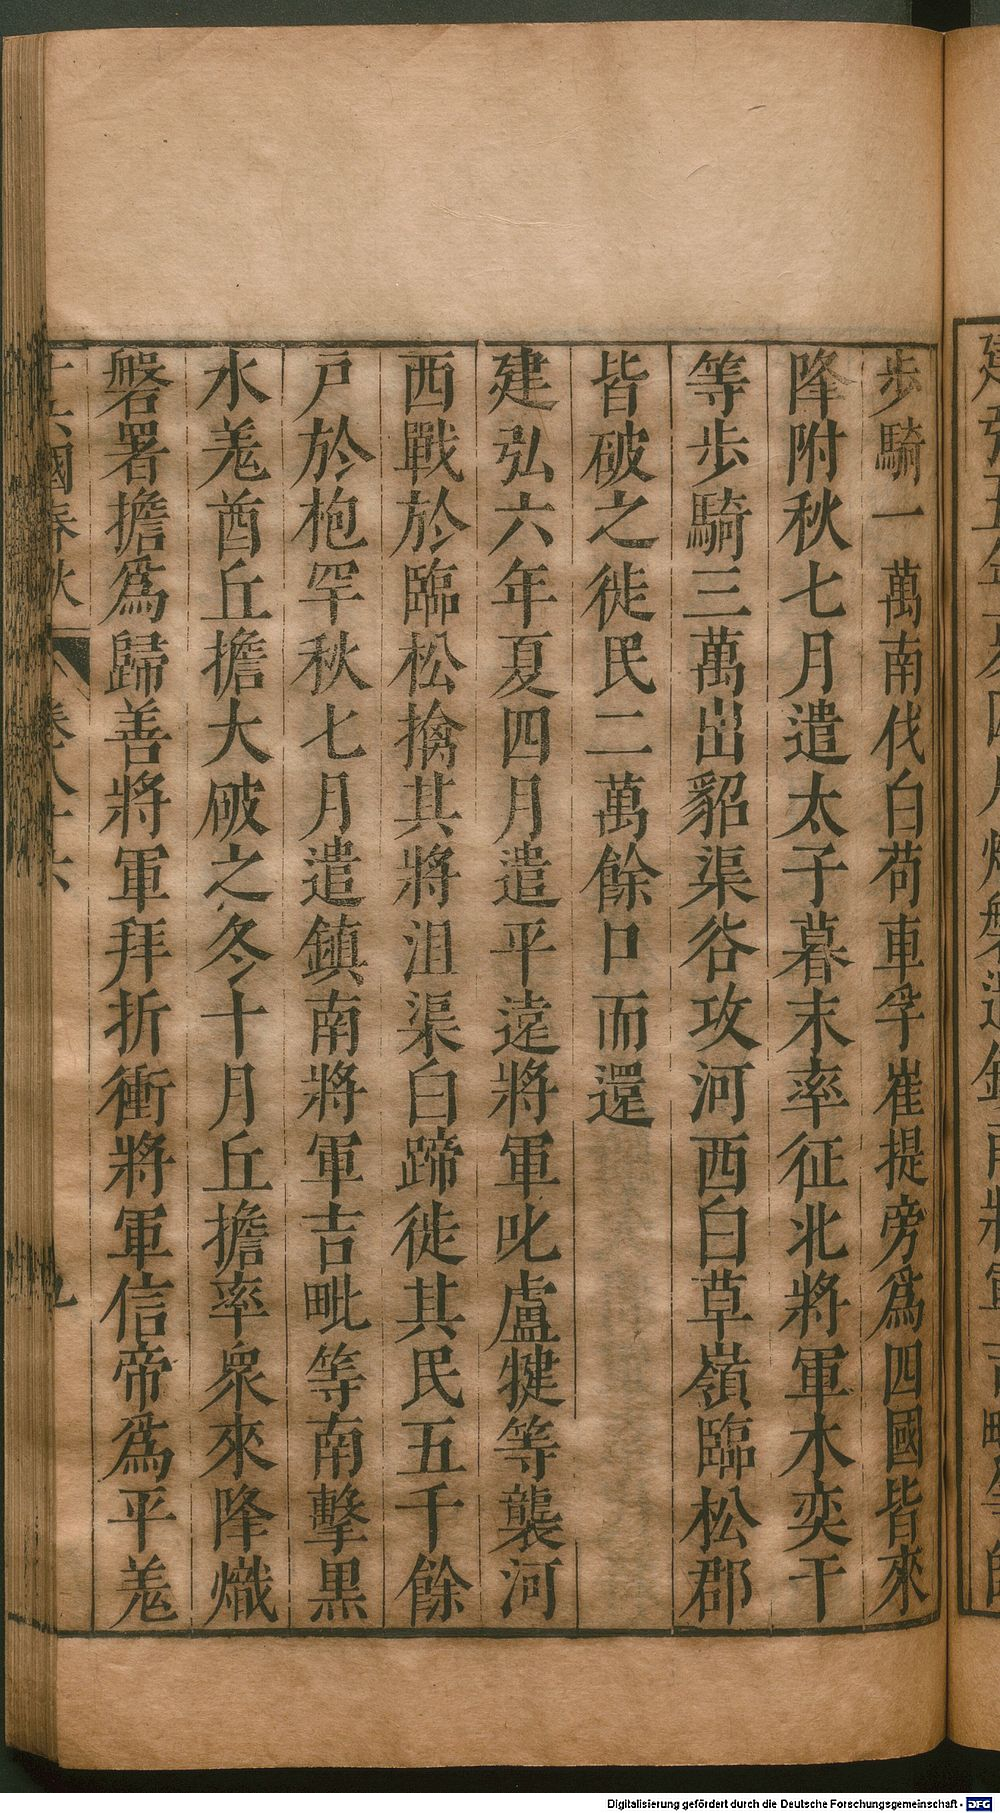 步騎一萬南伐白苟車孚崔提旁爲四國皆來
降附秋七月遣太子暮末率征北將軍木奕干
等步騎三萬出貂渠谷攻河西白草嶺臨松郡
皆破之徙民二萬餘口而還
建弘六年夏四月遣平遠將軍叱盧犍等襲河
西戰於臨松擒其將沮渠白蹄徙其民五千餘
戸於枹罕秋七月遣鎮南將軍吉毗等南擊黑
水羌酋丘擔大破之冬十月丘擔率衆來降熾
磐署擔爲歸善將軍拜折衝將軍信帝爲平羌
十六國春秋 卷八十六 九
Digitalisierung gefördert durch die Deutsche Forschungsgemeinschaft - DFG